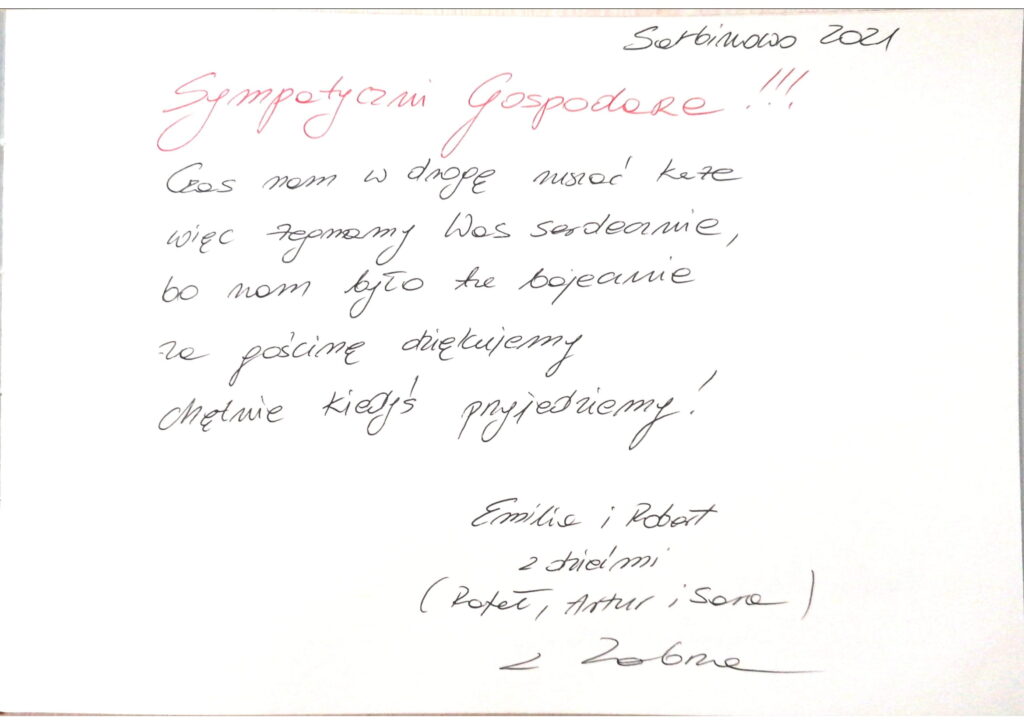 Sarbinowo 2021
Sympatyczni Gospodarze !!!
Czas nam w drogę ruszać każe
więc żegnamy Was serdecznie,
bo nam było tu bajecznie
za gościnę dziękujemy
chętnie kiedyś przyjedziemy!
Emilia i Robert
z dziećmi
(Rafał, Artur i Sara)
z Zabrza